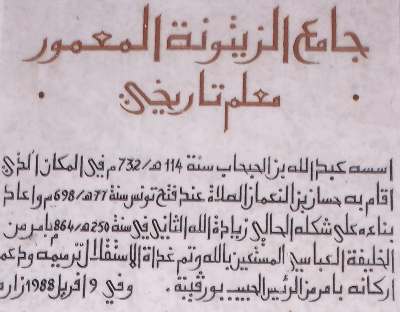 جامع الزيتونة المعمور
معلم تاريخي
اسسه عبد الله بن الحبحاب سنة 114هـ/732م في المكان الذي
اقام به حسان بن النعمان الصلاة عند فتح تونس سنة 77هـ/698م واعاد
بناءه على شكله الحالي زيادة الله الثاني في سنة 250هـ/864م بامر من
الخليفة العباسي المستعين بالله وتم غداة الاستقلال ترميمه ودعم
اركانه بامر من الرئيس الحبيب بورقيبة . وفي 9 افريل 1988 زاره